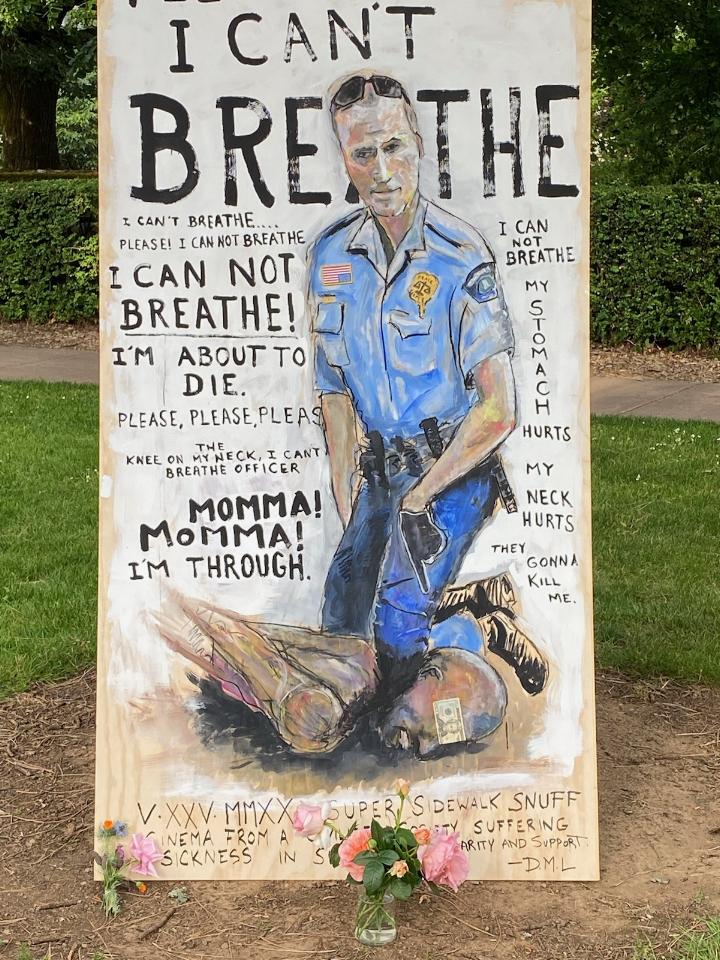 I CAN'T
BREATHE
I CAN'T BREATHE....
PLEASE! I CAN NOT BREATHE
I CAN NOT
BREATHE!
I'M ABOUT TO
DIE.
PLEASE, PLEASE, PLEAS
THE
KNEE ON MY NECK, I CAN'T
BREATHE OFFICER
MOMMA!
MOMMA!
I'M THROUGH.
I CAN
NOT
BREATHE
MY
STOMACH
HURTS
MY
NECK
HURTS
THEY
GONNA
KILL
ME.
V.XXV.MMXX SUPER SIDEWALK SNUFF
CINEMA FROM A SUFFERING
SICKNESS IN AND SUPPORT.
-D.M.L